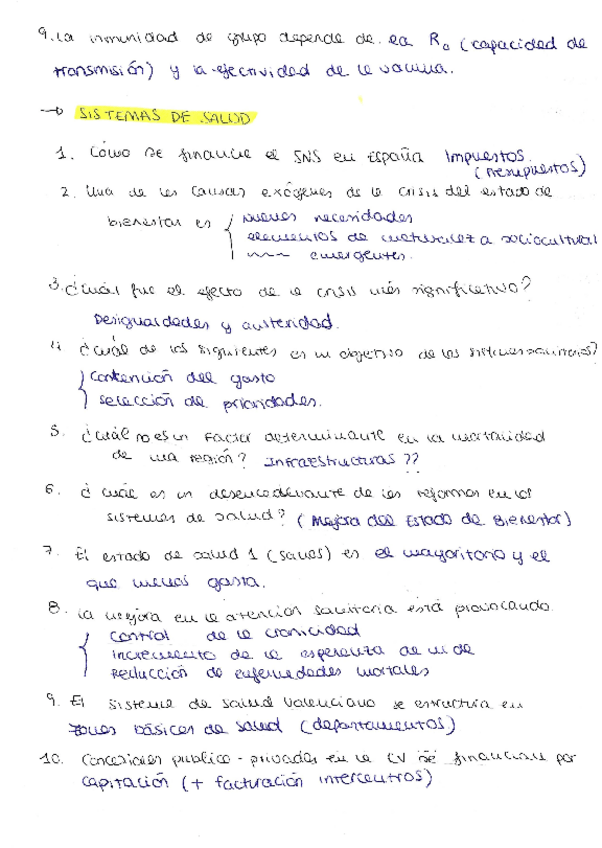 9. La inmunidad de grupo depende de la R₀ (capacidad de
transmisión) y la efectividad de la vacuna.
→ SISTEMAS DE SALUD
1. Cómo se financia el SNS en España Impuestos
(Presupuestos)
2. Una de las causas exógenas de la crisis del estado de
bienestar es { nuevas necesidades
elementos de naturaleza sociocultural
emergentes.
3. ¿Cuál fue el efecto de la crisis más significativo?
Desigualdades y austeridad.
4. ¿Cuál de los siguientes es un objetivo de los sistemas sanitarios?
{ Contención del gasto
selección de prioridades.
5. ¿Cuál no es un factor determinante en la mortalidad
de una región? Infraestructuras ??
6. ¿Cuál es un desencadenante de las reformas en los
sistemas de salud? (Mejora del Estado de Bienestar)
7. El estado de salud 1 (sanos) es el mayoritario y el
que menos gasta.
8. La mejora en la atención sanitaria está provocando
{ Control de la cronicidad
incremento de la esperanza de vida
Reducción de enfermedades mortales
9. El sistema de salud Valenciano se estructura en
zonas básicas de salud (departamentos)
10. Concesiones publico-privadas en la CV se financian por
capitación (+ facturación intercentros)